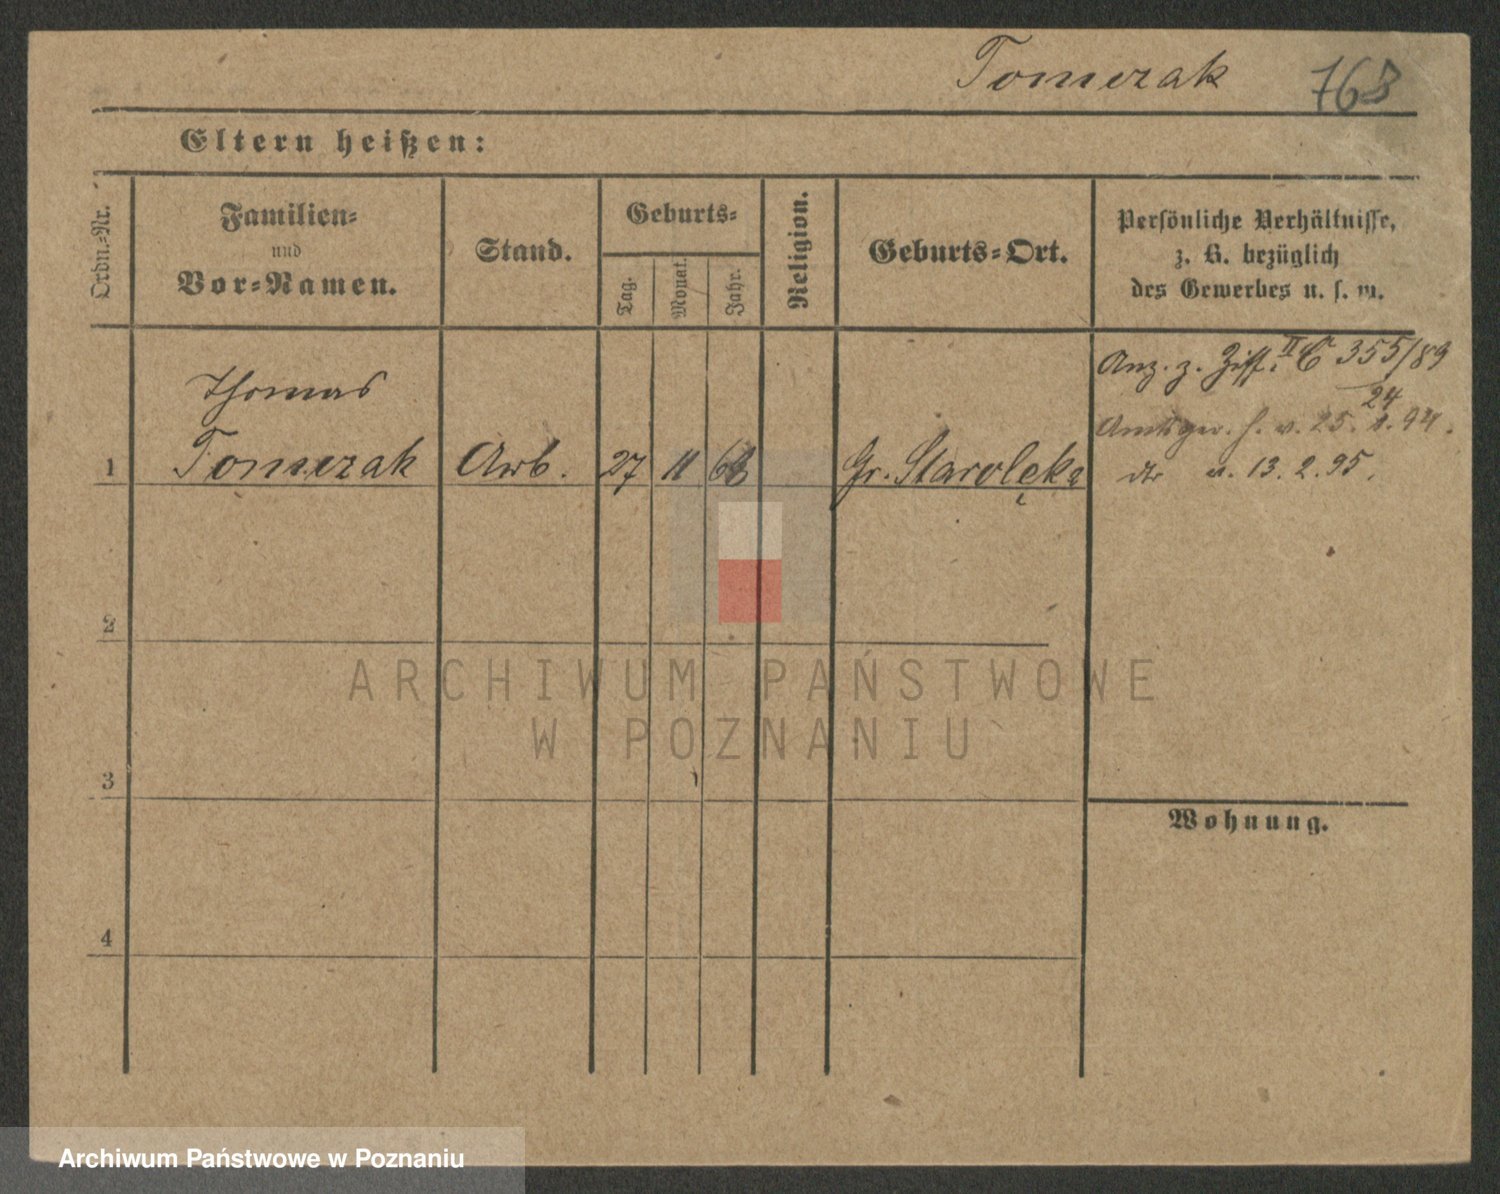 Tomczak 768
Eltern heißen:
Ordn.-Nr.
Familien-
und
Vor-Namen.
Stand.
Geburts-
Tag.
Monat.
Jahr.
Religion.
Geburts-Ort.
Persönliche Verhältnisse,
z. B. bezüglich
des Gewerbes u. s. w.
Thomas
1 Tomczak Arb. 27 11 68 Gr. Starolęka
Anz. z. Ziff. II C 355/89
24
Amtsger. h. v. 25. 1. 94.
dto v. 13. 2. 95.
2
3
4
Wohnung.
ARCHIWUM PAŃSTWOWE
W POZNANIU
Archiwum Państwowe w Poznaniu